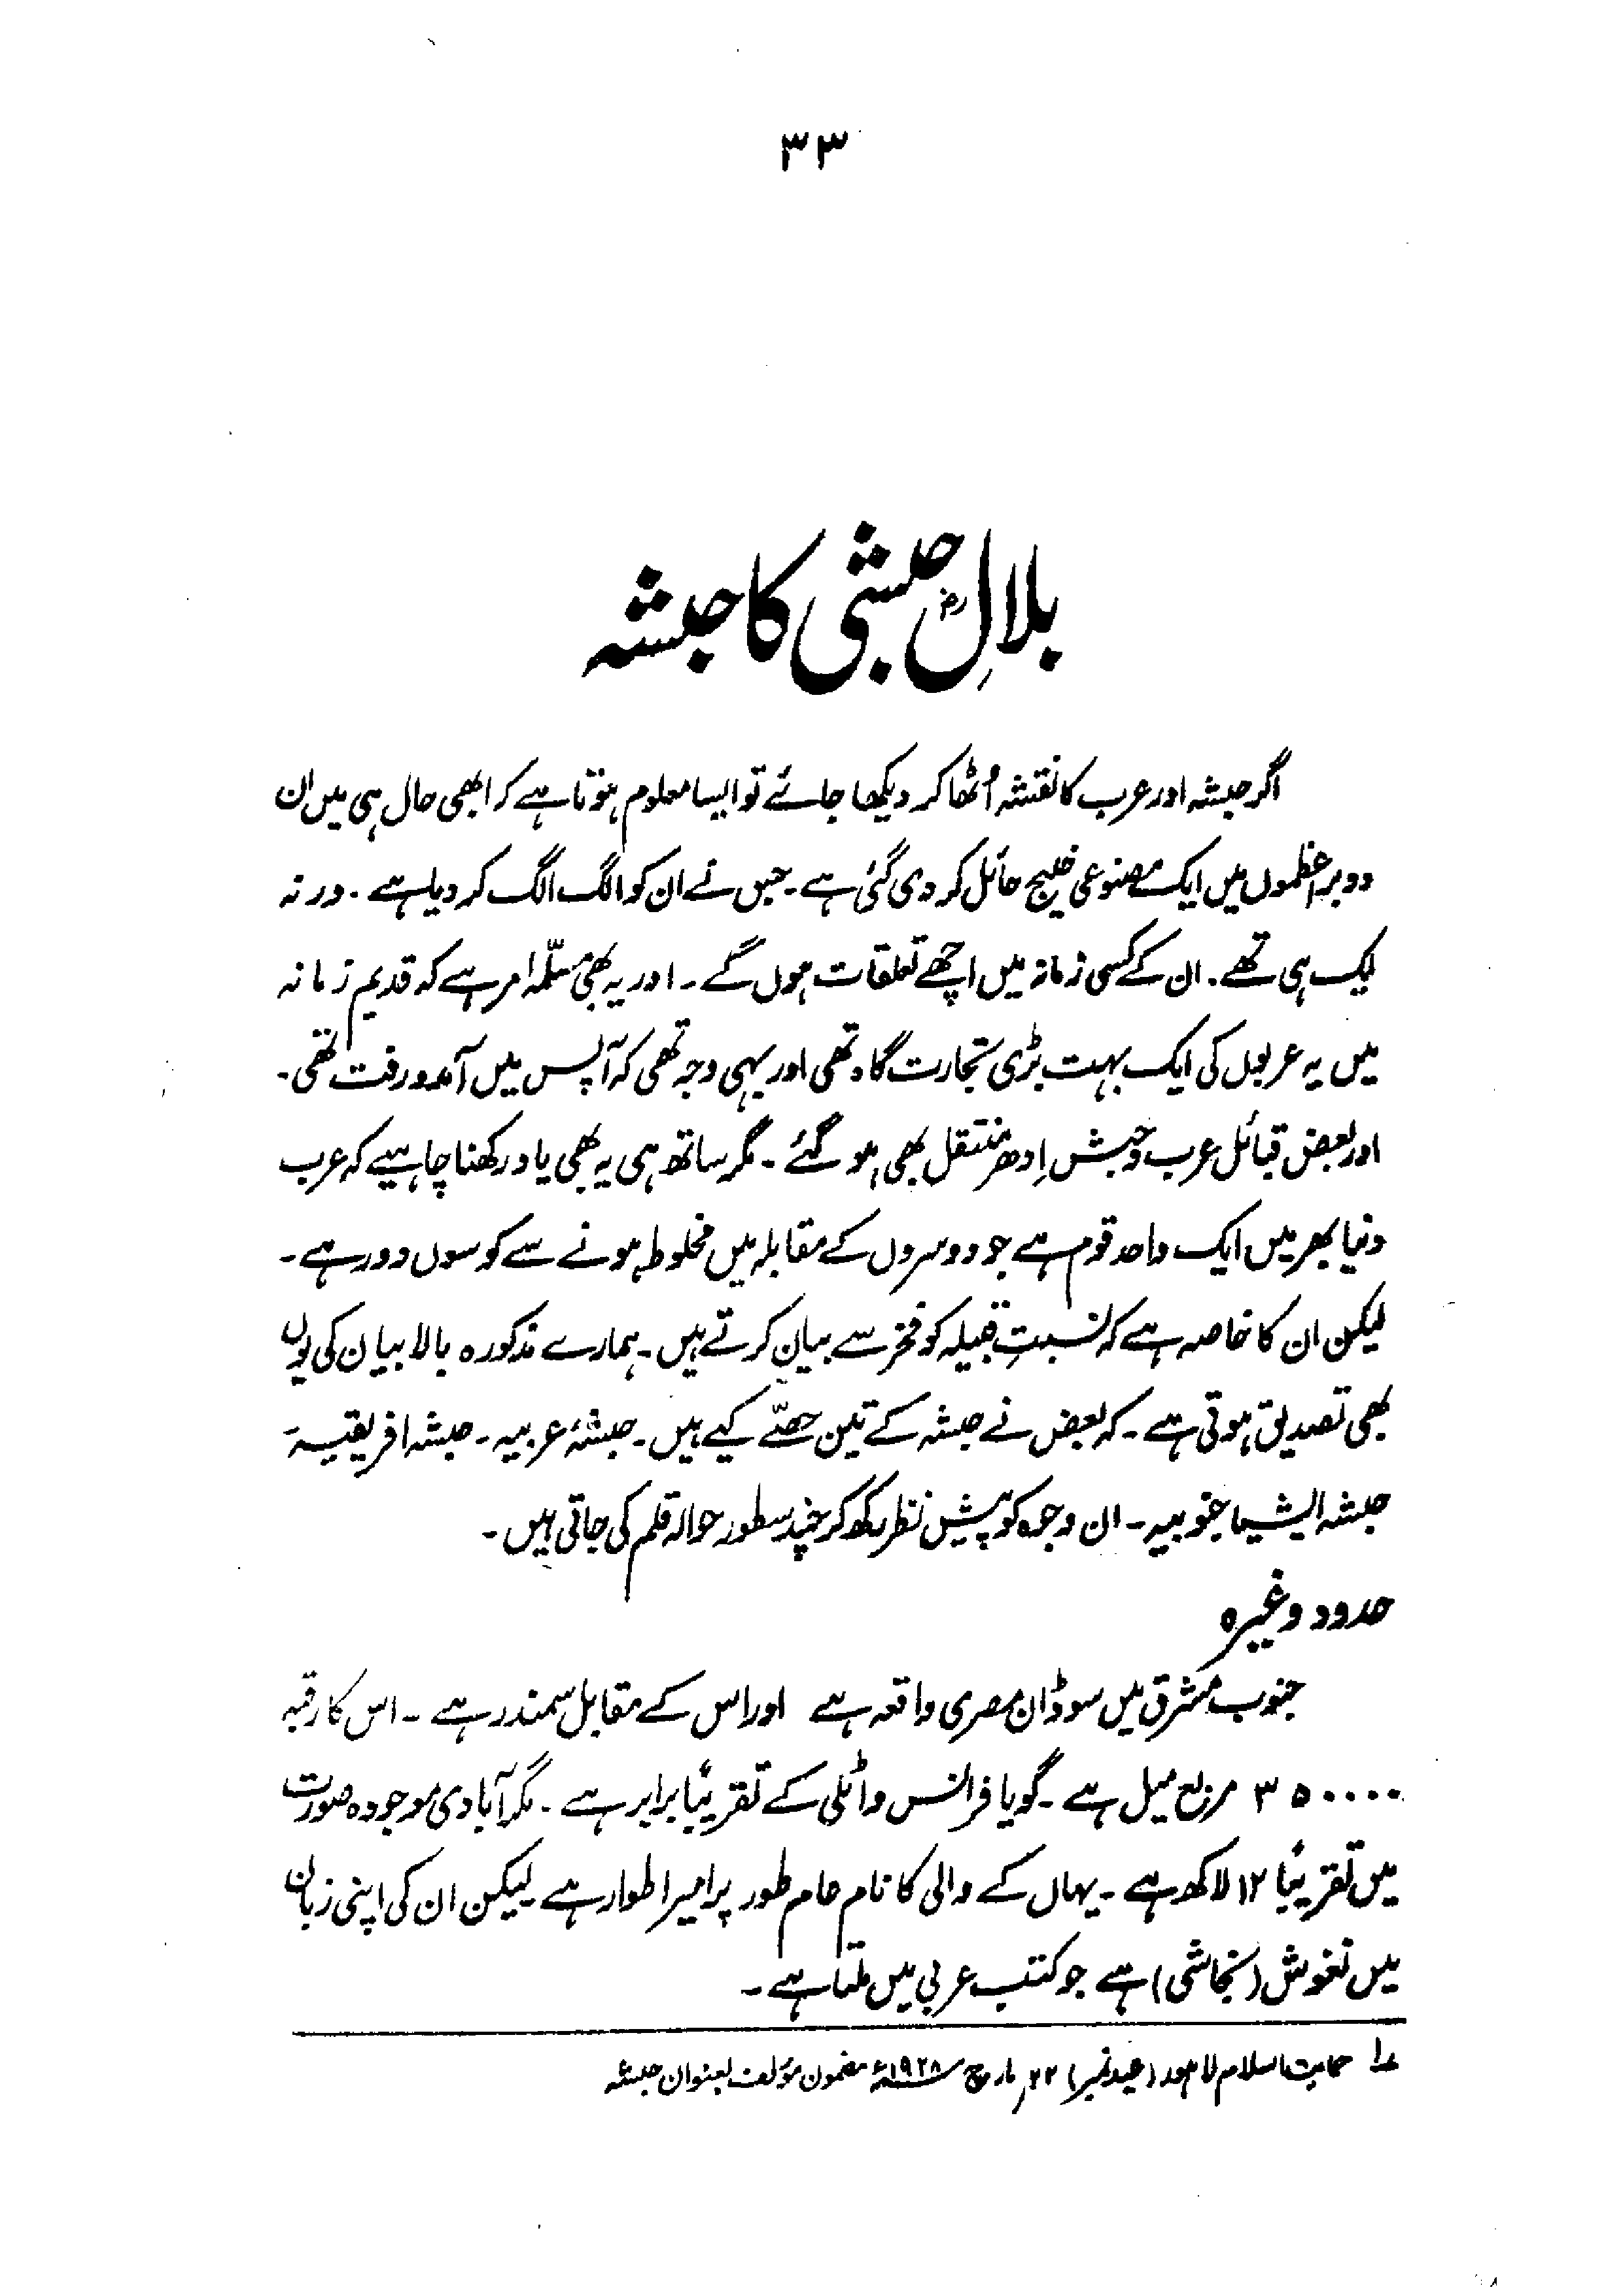 ۳۳
بلالِ حبشیؓ کا حبشہ
اگر حبشہ اور عرب کا نقشہ اُٹھا کر دیکھا جائے تو ایسا معلوم ہوتا ہے کہ ابھی حال ہی میں ان
دو براعظموں میں ایک مصنوعی خلیج حائل کر دی گئی ہے۔ جس نے ان کو الگ الگ کر دیا ہے۔ ورنہ
ایک ہی تھے۔ ان کے کسی زمانہ میں اچھے تعلقات ہوں گے۔ اور یہ بھی مسلّمہ امر ہے کہ قدیم زمانہ
میں یہ عربوں کی ایک بہت بڑی تجارت گاہ تھی اور یہی وجہ تھی کہ آپس میں آمدورفت تھی۔
اور بعض قبائل عرب و حبش اِدھر منتقل بھی ہو گئے۔ مگر ساتھ ہی یہ بھی یاد رکھنا چاہیے کہ عرب
دنیا بھر میں ایک واحد قوم ہے جو دوسروں کے مقابلہ میں مخلوط ہونے سے کوسوں دور ہے۔
لیکن ان کا خاصہ ہے کہ نسبتِ قبیلہ کو فخر سے بیان کرتے ہیں۔ ہمارے مذکورہ بالا بیان کی یوں
بھی تصدیق ہوتی ہے۔ کہ بعض نے حبشہ کے تین حصّے کیے ہیں۔ حبشۂ عربیہ۔ حبشہ افریقیہ۔
حبشہ ایشیا جنوبیہ۔ ان وجوہ کو پیش نظر رکھ کر چند سطور حوالہ قلم کی جاتی ہیں۔
حدود وغیرہ
جنوب مشرق میں سوڈان مصری واقعہ ہے اور اس کے مقابل سمندر ہے۔ اس کا رقبہ
۳۵۰۰۰۰ مربع میل ہے۔ گویا فرانس و اٹلی کے تقریباً برابر ہے۔ مگر آبادی موجودہ صورت
میں تقریباً ۱۲ لاکھ ہے۔ یہاں کے والی کا نام عام طور پر امپراطوار ہے لیکن ان کی اپنی زبان
میں نغوش (نجاشی) ہے جو کتب عربی میں ملتا ہے۔
۱؎ حمایت اسلام لاہور (عید نمبر) ۲۲؍ مارچ ۱۹۲۸ء مضمون مؤلف بعنوان حبشہ